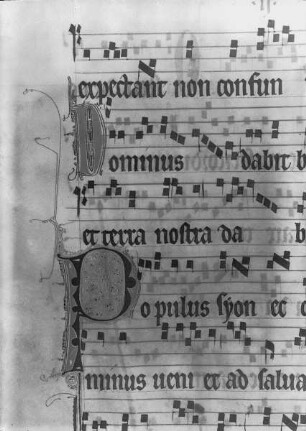 expectant non confun
Dominus dabit b
et terra nostra da b
Populus syon ec c
minus veni et ad salua